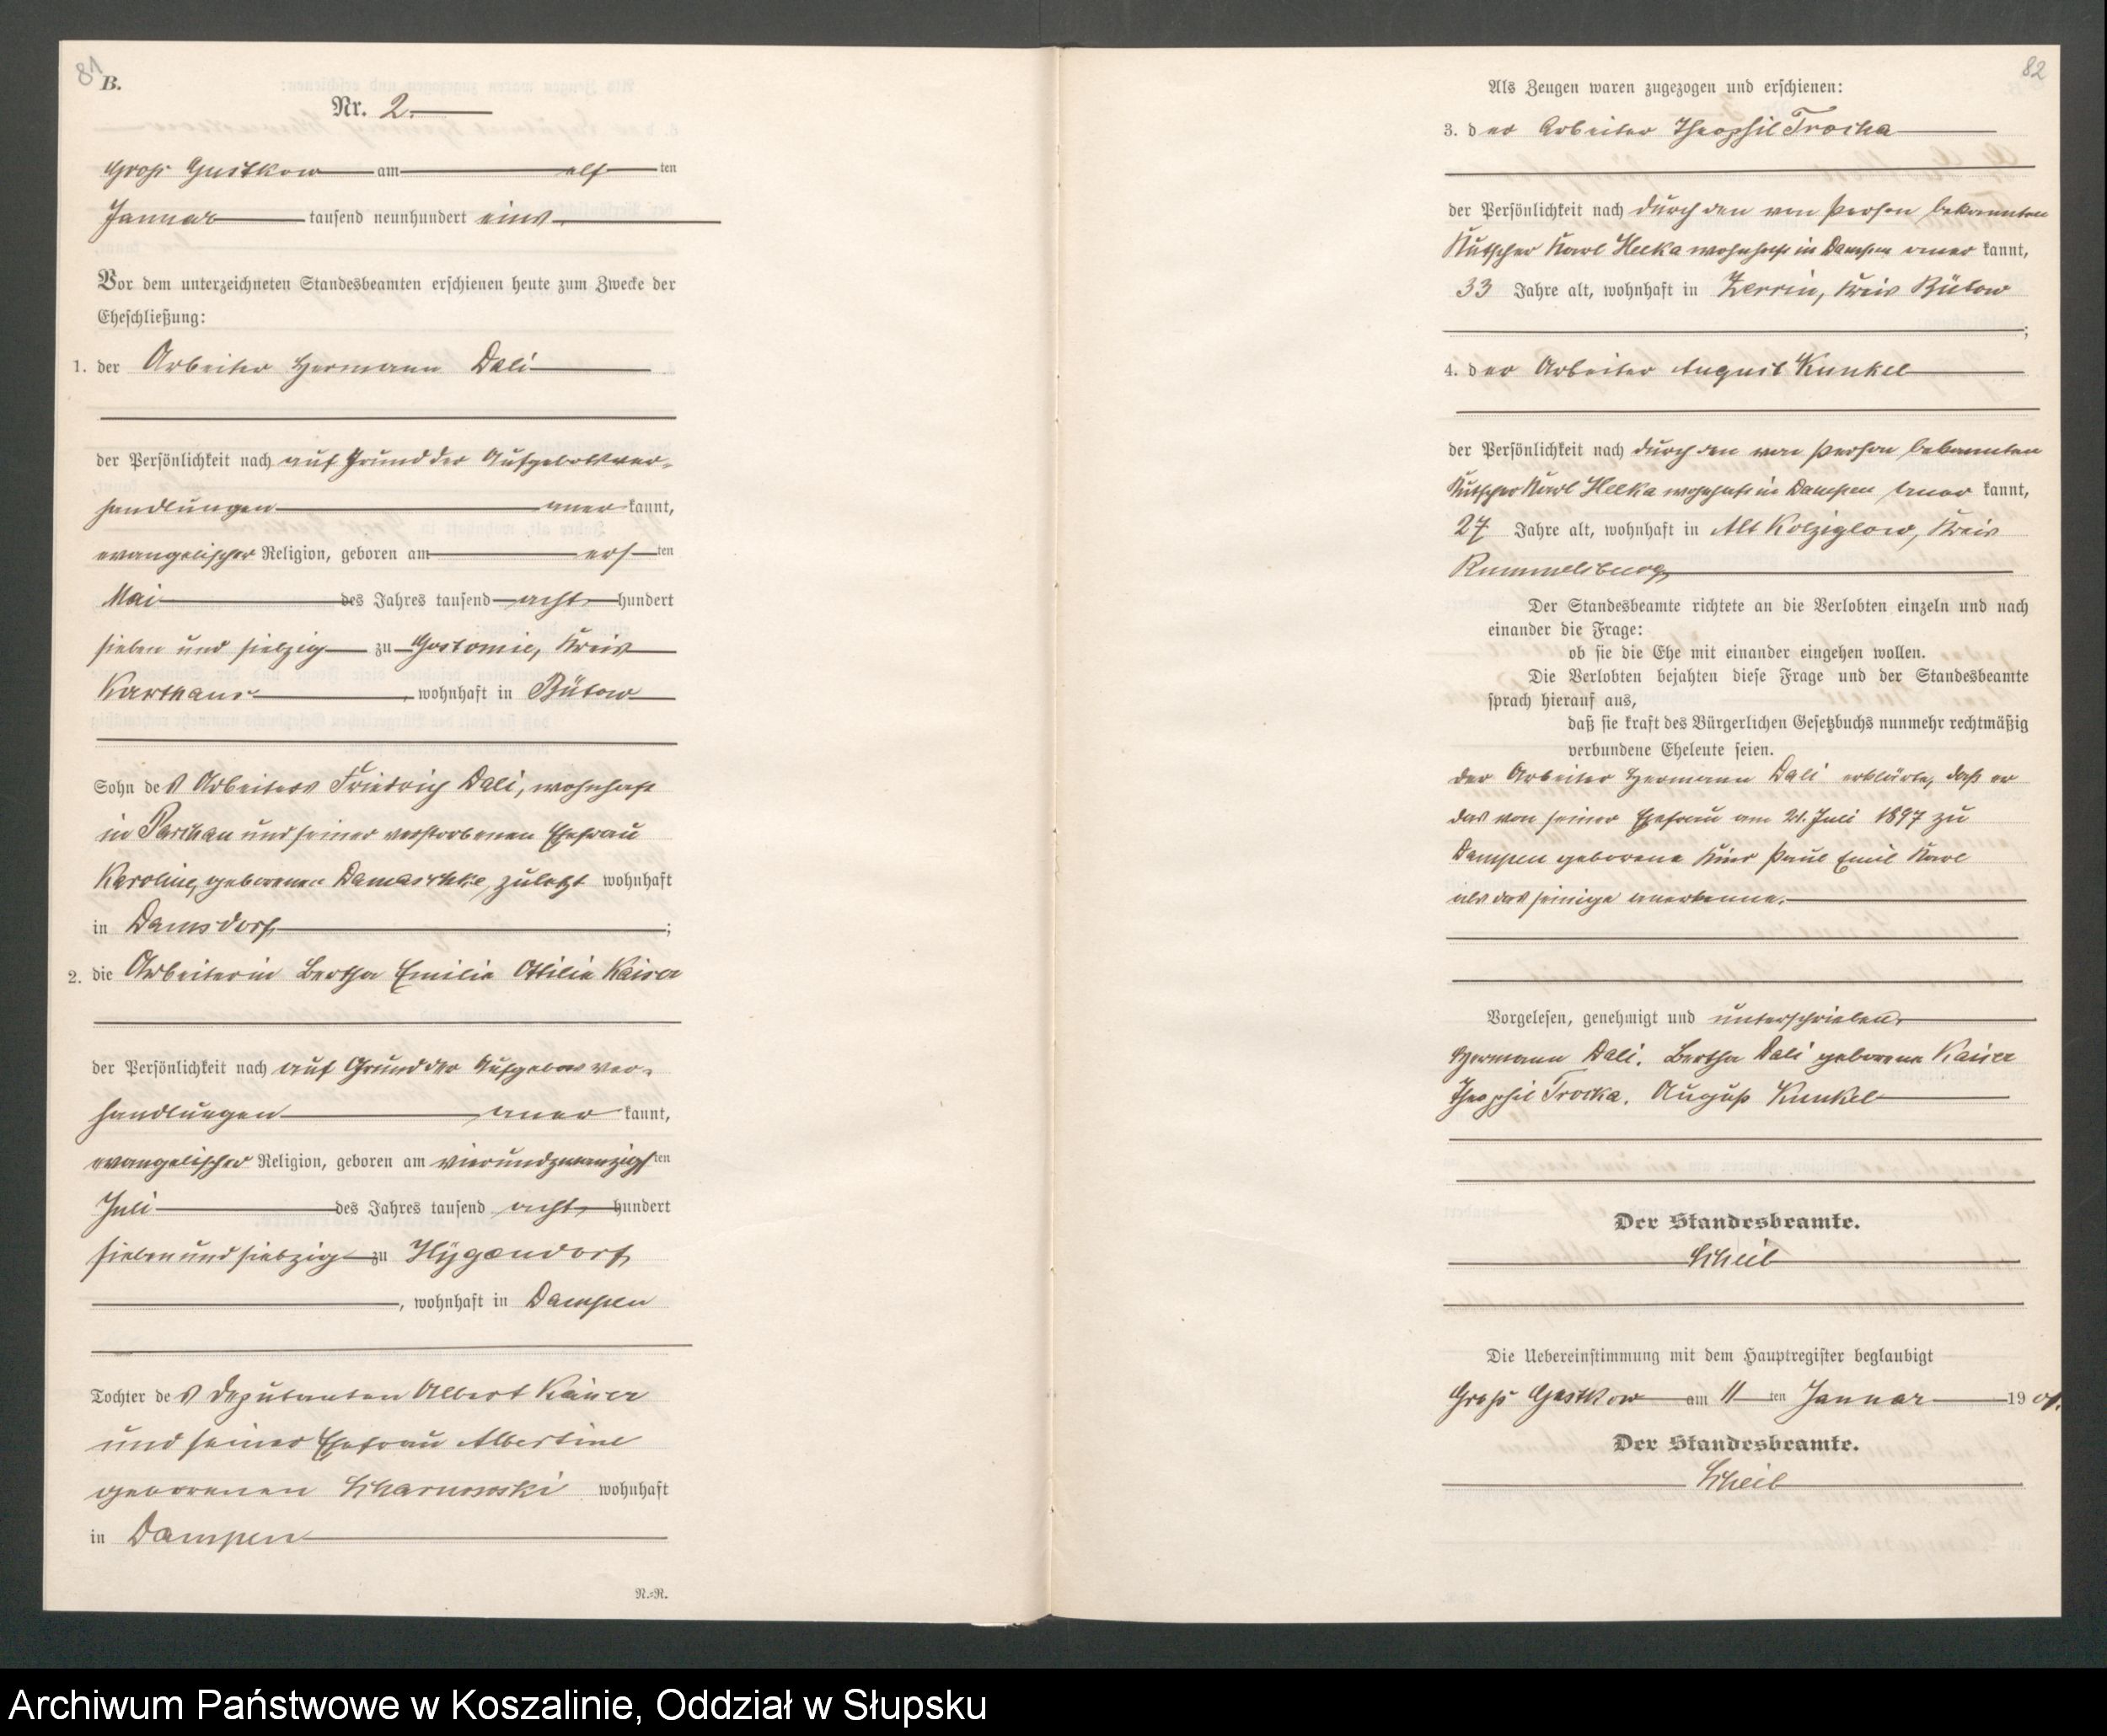 81
B.
Nr. 2.
Groß Gustkow am elf ten
Januar tausend neunhundert eins.
Vor dem unterzeichneten Standesbeamten erschienen heute zum Zwecke der
Eheschließung:
1. der Arbeiter Hermann Dali
der Persönlichkeit nach auf Grund der Aufgebotsver-
handlungen aner kannt,
evangelischer Religion, geboren am ers ten
Mai des Jahres tausend acht hundert
sieben und siebzig zu Gostomie, Kreis
Karthaus, wohnhaft in Bütow
Sohn des Arbeiters Friedrich Dali, wohnhaft
in und seiner verstorbenen Ehefrau
Karoline, geborenen Damaschke, zuletzt wohnhaft
in Damsdorf;
2. die Arbeiterin Bertha Emilie Ottilie Kaiser
der Persönlichkeit nach auf Grund der Aufgebotsver-
handlungen aner kannt,
evangelischer Religion, geboren am vierundzwanzigs ten
Juli des Jahres tausend acht hundert
sieben und siebzig zu Hygendorf
, wohnhaft in Dampen
Tochter des Deputanten Albert Kaiser
und seiner Ehefrau Albertine
geborenen Scharnowski wohnhaft
in Dampen
N.-R.
82
Als Zeugen waren zugezogen und erschienen:
3. der Arbeiter Theophil Trocka
der Persönlichkeit nach durch den von Person bekannten
Kutscher Karl Heeka wohnhaft in Dampen aner kannt,
33 Jahre alt, wohnhaft in Zerrin, Kreis Bütow
;
4. der Arbeiter August Kunkel
der Persönlichkeit nach durch den von Person bekannten
Kutscher Karl Heeka wohnhaft in Dampen aner kannt,
27 Jahre alt, wohnhaft in Alt Kolziglow, Kreis
Rummelsburg
Der Standesbeamte richtete an die Verlobten einzeln und nach
einander die Frage:
ob sie die Ehe mit einander eingehen wollen.
Die Verlobten bejahten diese Frage und der Standesbeamte
sprach hierauf aus,
daß sie kraft des Bürgerlichen Gesetzbuchs nunmehr rechtmäßig
verbundene Eheleute seien.
Der Arbeiter Hermann Dali erklärte, daß er
das von seiner Ehefrau am 21. Juli 1897 zu
Dampen geborene Kind Paul Emil Karl
als das seinige anerkenne.
Vorgelesen, genehmigt und unterschrieben.
Hermann Dali. Bertha Dali geborene Kaiser
Theophil Trocka. August Kunkel
Der Standesbeamte.
Scheil
Die Uebereinstimmung mit dem Hauptregister beglaubigt
Groß Gustkow am 11 ten Januar 1901.
Der Standesbeamte.
Scheil
Archiwum Państwowe w Koszalinie, Oddział w Słupsku